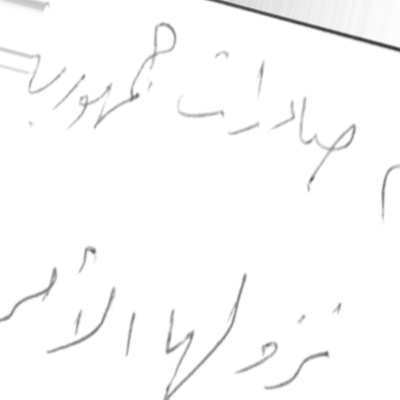 صادرات جمهورية
نزولها الأمر